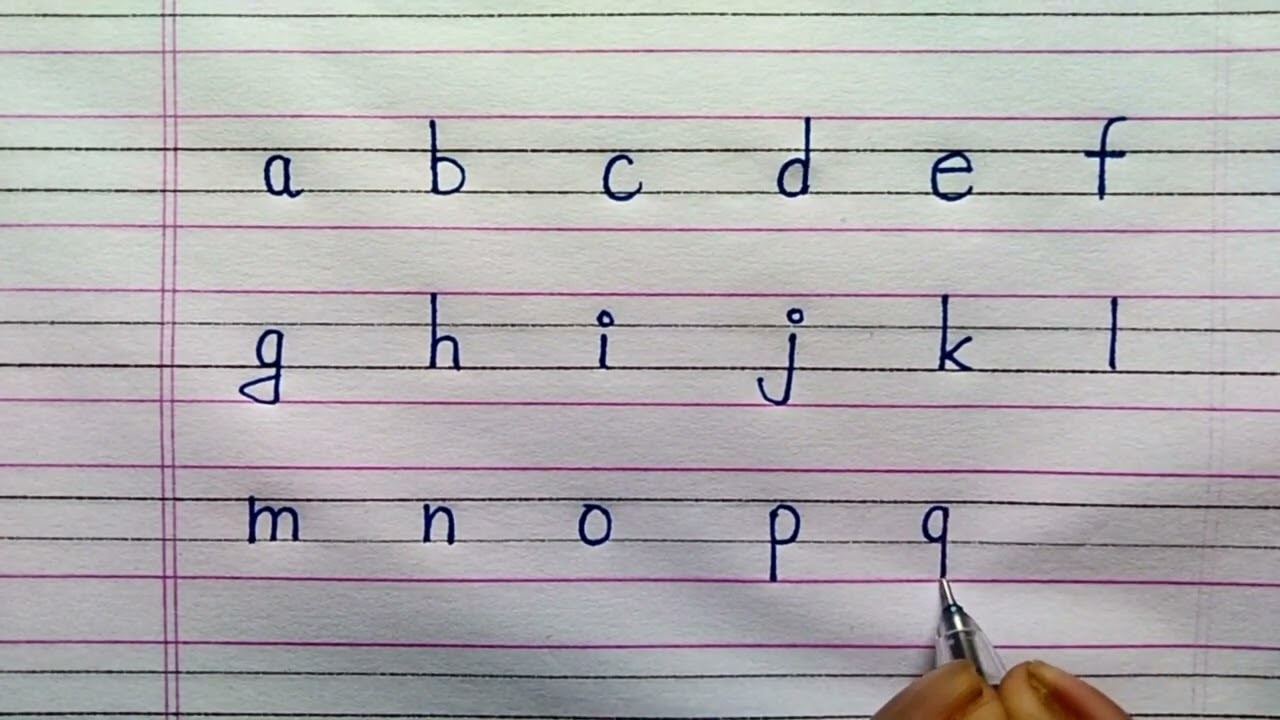 a b c d e f
g h i j k l
m n o p q